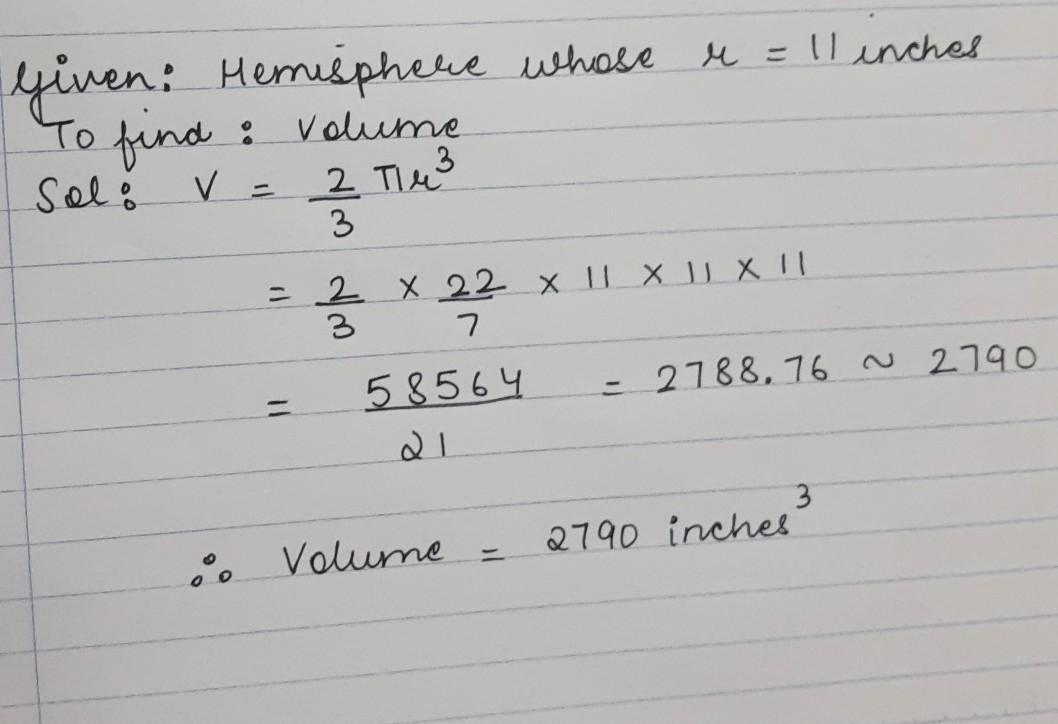 Given: Hemisphere whose r = 11 inches
To find : Volume
Sol: V = 2/3 πr³
= 2/3 × 22/7 × 11 × 11 × 11
= 58564/21 = 2788.76 ~ 2790
∴ Volume = 2790 inches³